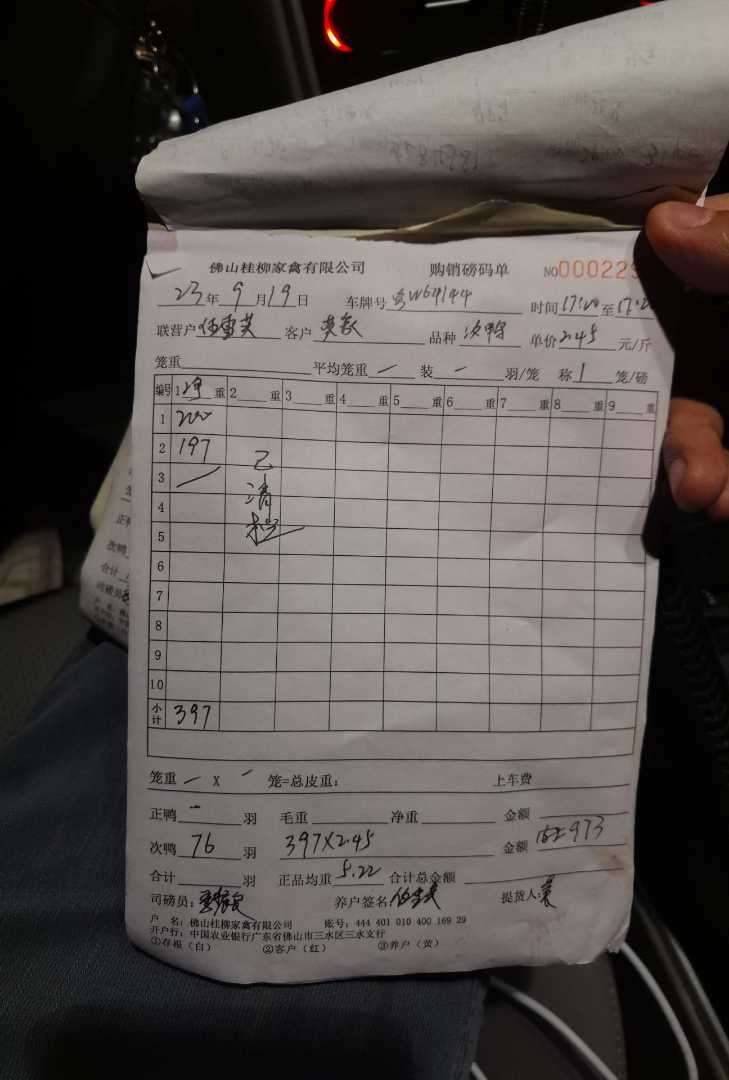 佛山桂柳家禽有限公司 购销磅码单 NO00022
23年9月19日 车牌号 时间17:20至17:2
联营户 客户 品种次鸭 单价2.45元/斤
笼重 平均笼重 — 装 — 羽/笼 称1笼/磅
编号 1净重 2重 3重 4重 5重 6重 7重 8重 9重
1 200
2 197 已
3 / 清
4
5
6
7
8
9
10
小计 397
笼重 — X — 笼=总皮重: 上车费
正鸭 — 羽 毛重 净重 金额
次鸭 76 羽 397X2.45 金额 973
合计 羽 正品均重 5.22 合计总金额
司磅员: 养户签名 提货人:
户 名: 佛山桂柳家禽有限公司 账号: 444 401 010 400 169 29
开户行: 中国农业银行广东省佛山市三水区三水支行
①存根(白) ②客户(红) ③养户(黄)